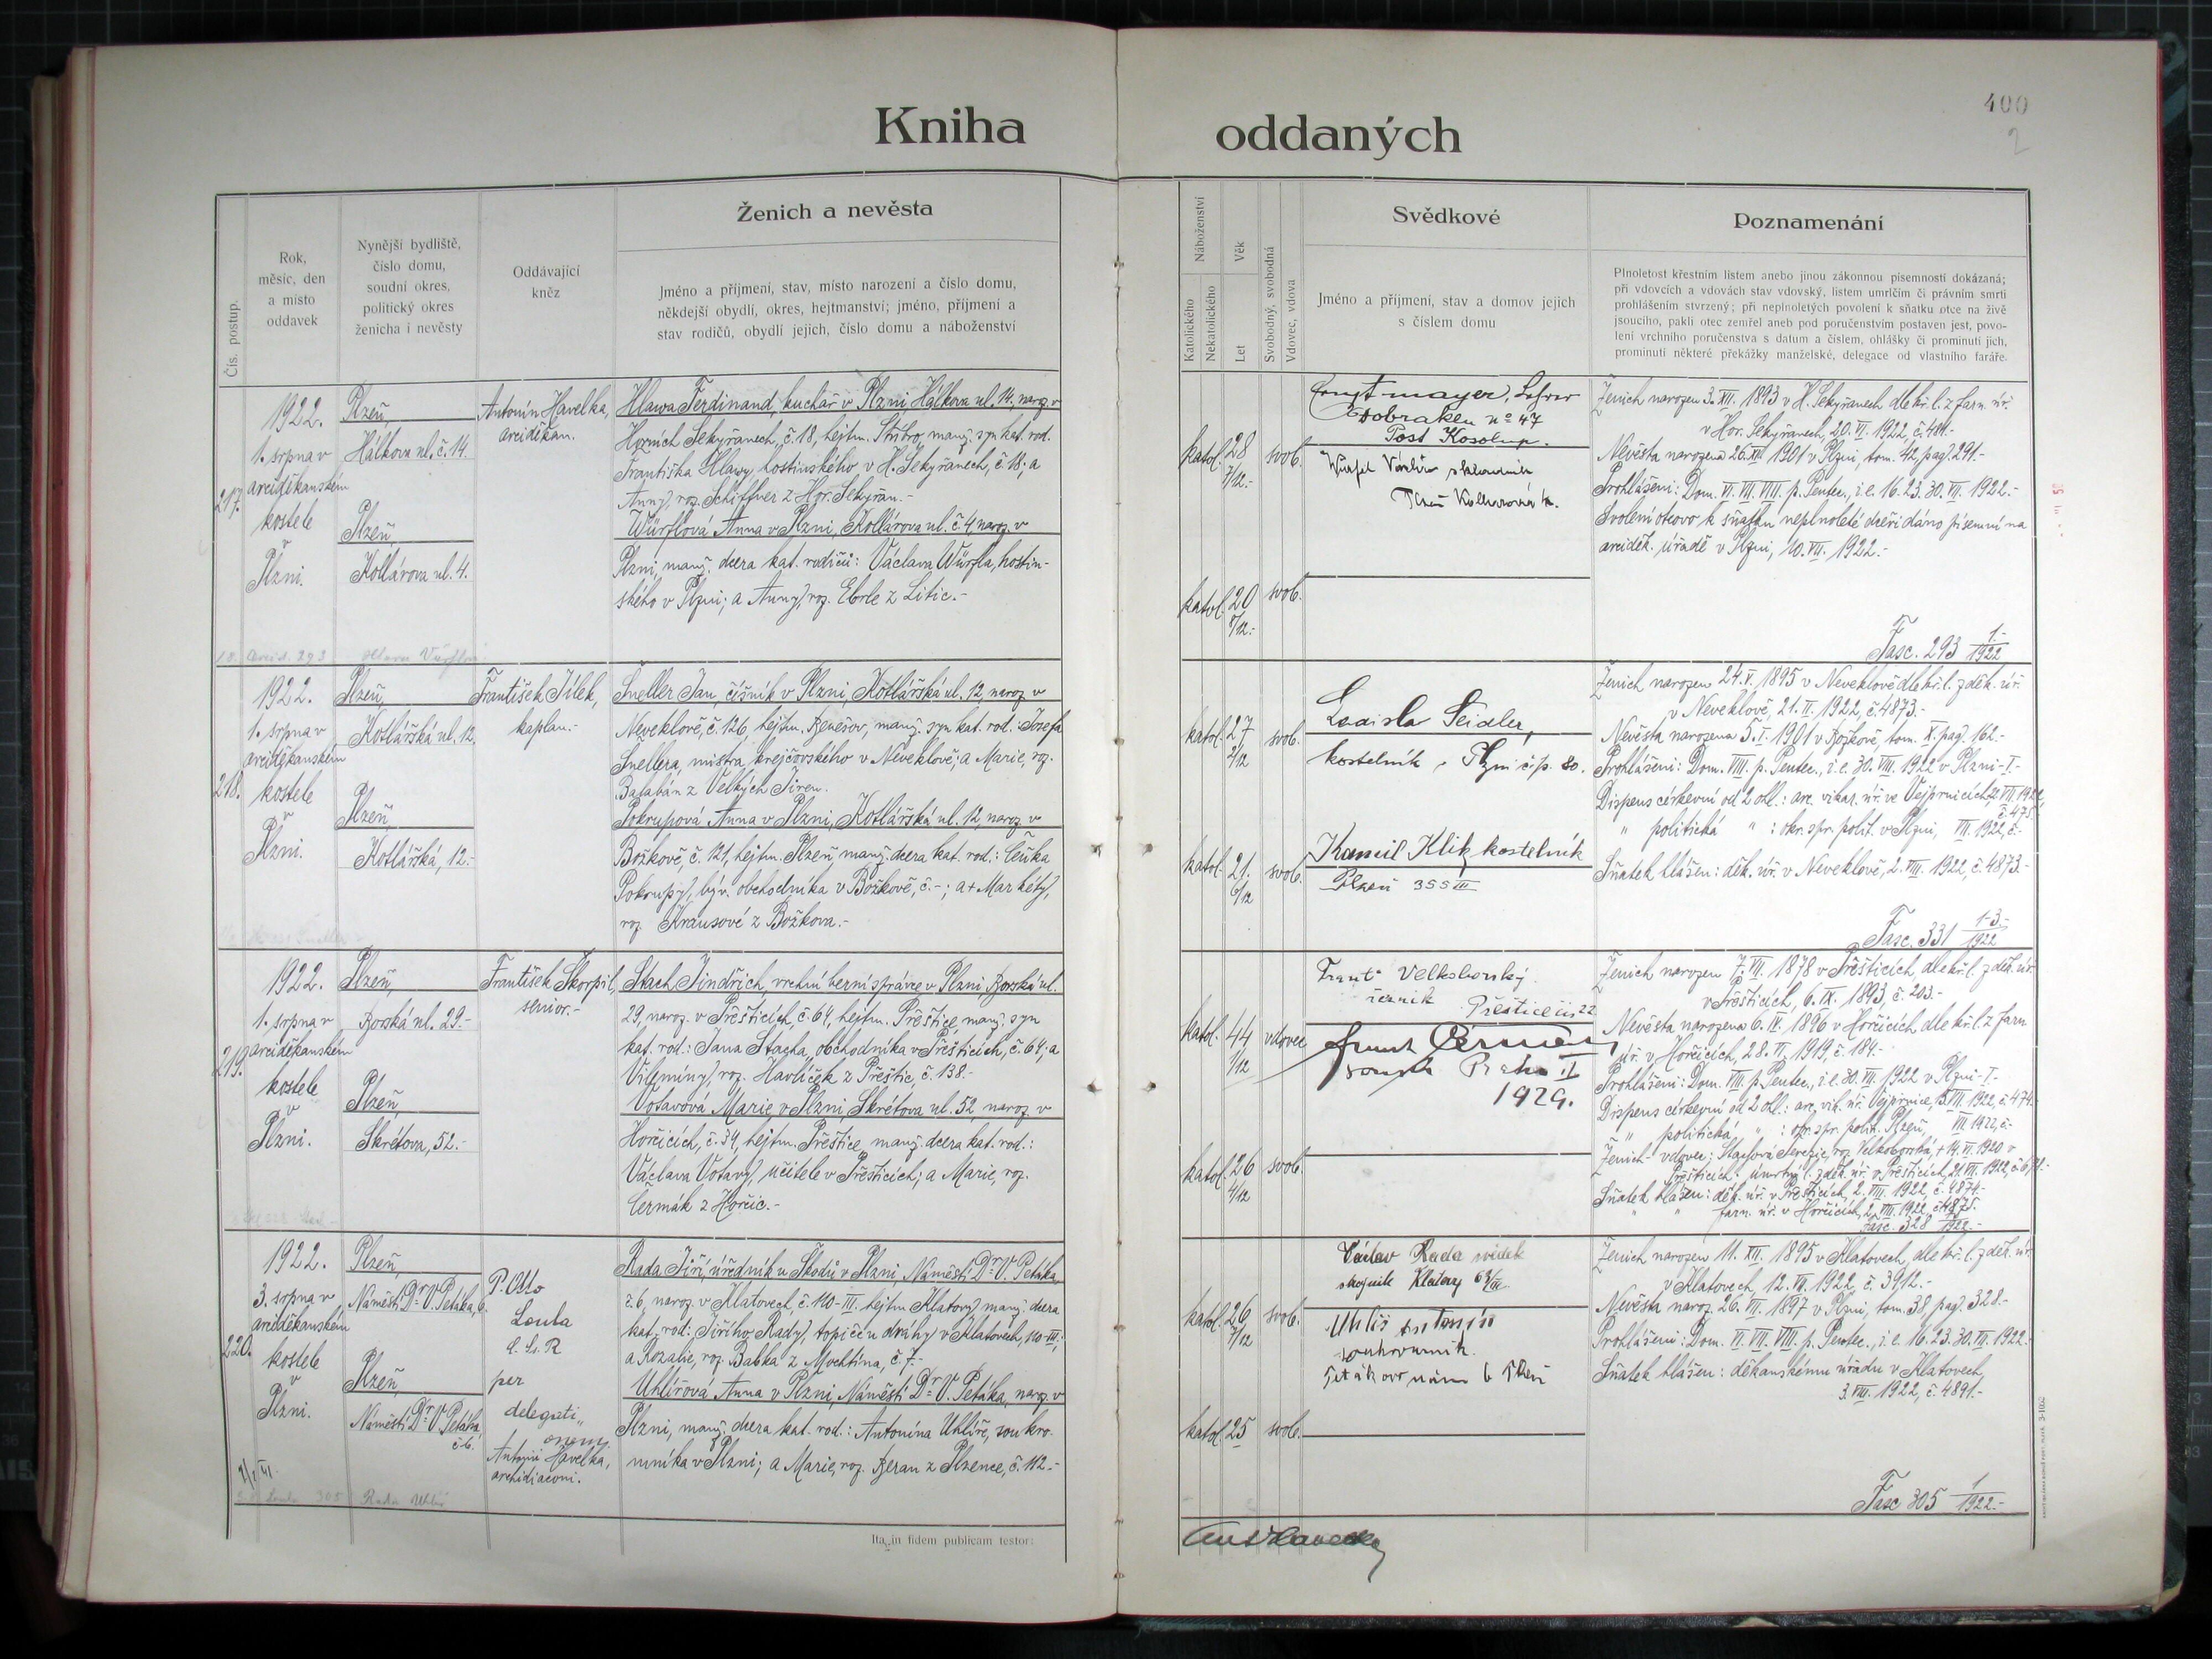 400
2
Kniha oddaných
Čís. postup.
Rok,
měsíc, den
a místo
oddavek
Nynější bydliště,
číslo domu,
soudní okres,
politický okres
ženicha i nevěsty
Oddávající
kněz
Ženich a nevěsta
Jméno a příjmení, stav, místo narození a číslo domu,
někdejší obydlí, okres, hejtmanství; jméno, příjmení a
stav rodičů, obydlí jejich, číslo domu a náboženství
Náboženství
Katolického
Nekatolického
Věk
Let
Svobodný, svobodná
Vdovec, vdova
Svědkové
Jméno a příjmení, stav a domov jejich
s číslem domu
Poznamenání
Plnoletost křestním listem anebo jinou zákonnou písemností dokázaná;
při vdovcích a vdovách stav vdovský, listem umrlčím či právním smrti
prohlášením stvrzený; při neplnoletých povolení k sňatku otce na živě
jsoucího, pakli otec zemřel aneb pod poručenstvím postaven jest, povo-
lení vrchního poručenstva s datum a číslem, ohlášky či prominutí jich,
prominutí některé překážky manželské, delegace od vlastního faráře.
217.
1922.
1. srpna v
arciděkanském
kostele
v
Plzni.
Plzeň,
Hálkova ul. č. 14.
Plzeň,
Kollárova ul. 4.
Antonín Havelka,
arciděkan.
Hlawa Ferdinand, kuchař v Plzni, Hálkova ul. 14, naroz. v
Horních Sekyřanech, č. 18, hejtm. Stříbro, manž. syn kat. rod.
Františka Hlawy, hostinského v H. Sekyřanech, č. 18; a
Anny, roz. Schiffner z Hor. Sekyřan.-
Würflová Anna v Plzni, Kollárova ul. č. 4, naroz. v
Plzni, manž. dcera kat. rodičů: Václava Würfla, hostin-
ského v Plzni; a Anny, roz. Eberle z Litic.-
katol. 28 7/12.- svob.
katol. 20 7/12.- svob.
Dobraken no 47
Post Kosolup.
Ženich narozen 3. XII. 1893 v H. Sekyřanech dle kř. l. z farn. úř.
v Hor. Sekyřanech, 20. VI. 1922, č. 484.-
Nevěsta narozena 26. XII. 1901 v Plzni, tom. 42, pag. 291.-
Prohlášeni: Dom. VI. VII. VIII. p. Pentec., i. e. 16. 23. 30. VII. 1922.-
Svolení otcovo k sňatku neplnoleté dceři dáno písemně na
arciděk. úřadě v Plzni, 10. VII. 1922.-
Fasc. 293 1.-/1922
218.
1922.
1. srpna v
arciděkanském
kostele
v
Plzni.
Plzeň,
Kotlářská ul. 12.
Plzeň,
Kotlářská, 12.-
František Jílek,
kaplan.-
Šneller Jan, číšník v Plzni, Kotlářská ul. 12, naroz. v
Neveklově, č. 126, hejtm. Benešov, manž. syn kat. rod. Josefa
Šnellera, mistra krejčovského v Neveklově; a Marie, roz.
Balabán z Velkých Jiren.
Pokrupová Anna v Plzni, Kotlářská ul. 12, naroz. v
Božkově, č. 121, hejtm. Plzeň, manž. dcera kat. rod.: Čeňka
Pokrupy, býv. obchodníka v Božkově, č.-; a + Markéty,
roz. Krausové z Božkova.-
katol. 27 2/12 svob.
katol. 21. 6/12 svob.
Ladisla Seidler,
kostelník, Plzni čp. 80.
Kamil Klik kostelník
Plzeň 355 III
Ženich narozen 24. V. 1895 v Neveklově dle kř. l. z děk. úř.
v Neveklově, 21. II. 1922, č. 4873.-
Nevěsta narozena 5. I. 1901 v Božkově, tom. X. pag. 162.-
Prohlášeni: Dom. VIII. p. Pentec., i. e. 30. VII. 1922 v Plzni-I.-
Dispens církevní od 2 ohl.: arc. vikar. úř. ve Vejprnicích, 1922,
č. 475.
" politická " : okr. spr. polit. v Plzni, VII. 1922, č.-
Sňatek hlášen: děk. úř. v Neveklově, 2. VIII. 1922, č. 4873.-
Fasc. 331 1-3.-/1922
219.
1922.
1. srpna v
arciděkanském
kostele
v
Plzni.
Plzeň,
Borská ul. 29.-
Plzeň,
Skrétova, 52.-
František Škorpil,
senior.-
Stach Jindřich, vrchní berní správce v Plzni, Borská ul.
29, naroz. v Přešticích, č. 64, hejtm. Přeštice, manž. syn
kat. rod.: Jana Stacha, obchodníka v Přešticích, č. 64; a
Vilemíny, roz. Havlíček z Přeštic, č. 138.-
Votavová Marie v Plzni Skrétova ul. 52, naroz. v
Horčicích, č. 34, hejtm. Přeštice, manž. dcera kat. rod.:
Václava Votavy, učitele v Přešticích; a Marie, roz.
Čermák z Horčic.-
katol. 44 1/12 vdovec
katol. 26 4/12 svob.
Přeštice čp. 22
Praha II
1929.
Ženich narozen 7. VI. 1878 v Přešticích, dle kř. l. z děk. úř.
v Přešticích, 6. IX. 1893, č. 203.-
Nevěsta narozena 6. IV. 1896 v Horčicích dle kř. l. z farn.
úř. v Horčicích, 28. VI. 1919, č. 184.-
Prohlášeni: Dom. VIII. p. Pentec., i. e. 30. VII. 1922 v Plzni-I.-
Dispens církevní od 2 ohl.: arc. vik. úř. Vejprnice, 1922, č. 474.
" politická, " : okr. spr. polit. Plzeň, VII. 1922, č.-
Ženich- vdovec: Stachová Terezie, roz. Velkoborská, + 14. VI. 1920 v
Přešticích
Sňatek hlášen: děk. úř. v Přešticích, 2. VIII. 1922, č. 4874.-
" " farn. úř. v Horčicích, 2. VIII. 1922, č. 4875.
Fasc. 328 1922.-
220.
1922.
3. srpna v
arciděkanském
kostele
v
Plzni.
Plzeň,
Náměstí Dr. V. Petáka, 6.
Plzeň,
Náměstí Dr. V. Petáka,
č. 6.
P. Otto
Loula
per
delegati"
onem
Antonii Havelka,
archidiaconi.
Rada Jiří, úředník u Škodů v Plzni, Náměstí Dr. V. Petáka,
č. 6, naroz. v Klatovech, č. 110-III. hejtm. Klatovy, manž. dcera
kat. rod: Jiřího Rady, topiče u dráhy v Klatovech, 110-III;
a Rozalie, roz. Babka z Mochtína, č. 7.-
Uhlířová Anna v Plzni, Náměstí Dr. V. Petáka, naroz. v
Plzni, manž. dcera kat. rod.: Antonína Uhlíře, soukro-
mníka v Plzni; a Marie, roz. Beran z Plzence, č. 112.-
katol. 26 7/12 svob.
katol. 25 svob.
Václav Rada svědek
Uhlíř Antonín
soukromník.
Petákovo nám 6 Plzeň
Ženich narozen 11. XII. 1895 v Klatovech, dle kř. l. z děk. úř.
v Klatovech, 12. VII. 1922, č. 3912.-
Nevěsta naroz. 26. VII. 1897 v Plzni, tom. 38, pag. 328.-
Prohlášeni: Dom. VI. VII. VIII. p. Pentec., i. e. 16. 23. 30. VII. 1922.-
Sňatek hlášen: děkanskému úřadu v Klatovech,
3. VIII. 1922, č. 4891.-
Fasc 305 1/1922.-
Ita in fidem publicam testor:
Ant Havelka